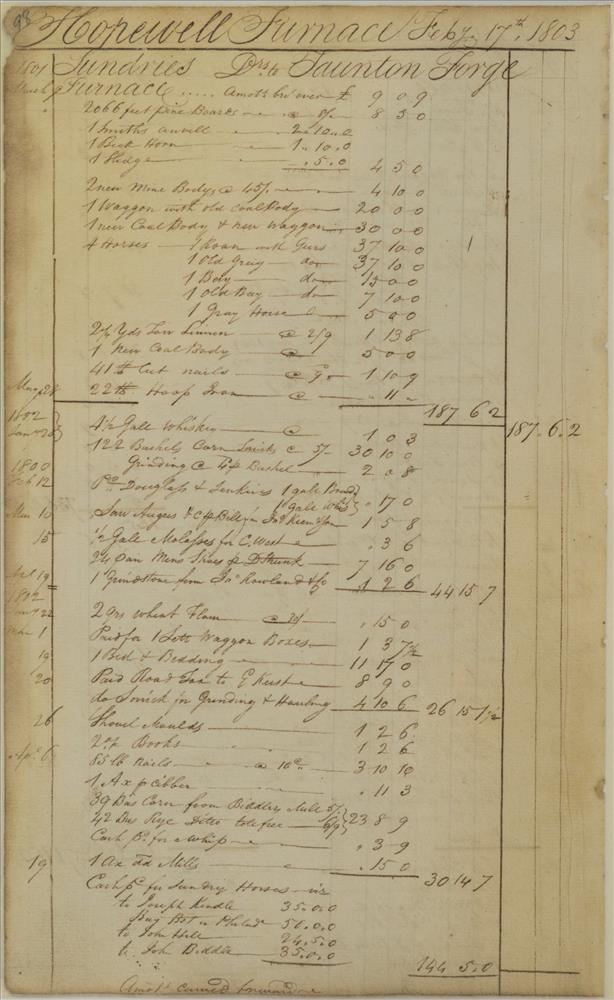 98
Hopewell Furnace Feby 17th 1803
1801 Sundries Drs to Taunton Forge
March 9 Furnace ..... Amot bro over £ 9 0 9
2066 feet pine Boards @ 8/- 8 5 0
1 Smiths anvill 2..10..0
1 Beck Horn 1..10..0
1 Sledge ..5..0 4 5 0
2 new Mine Bodys @ 45/- 4 10 0
1 Waggon with old Coal Body 20 0 0
1 new Coal Body & new Waggon 30 0 0
4 Horses 1 Roan with Gers 37 10 0
1 Old Grey do 37 10 0
1 Bay do 15 0 0
1 Old Bay do 7 10 0
1 Gray Horse 5 0 0
Yds Tow Linnen @ 2/9 1 13 8
1 New Coal Body @ 5 0 0
41 lb Cut nails @ 1 10 9
22 lb Hoop Iron @ 11
187 6 2 187.6.2
1802
4½ Galls Whiskey @ 1 0 3
122 Bushels Corn @ 5/- 30 10 0
Grinding @ Bushel 2 0 8
1800
Feb 12 Pd Douglass & Jenkins 1 gall Brandy
1 gall Whis . 17 0
10 1 5 8
15 ½ Gall Molasses for C. West 3 6
Pair Mens Shoes D Shunk 7 16 0
19 1 Grindstone from Jas Rowland & Co 1 2 6 44 15 7
1802
22 2 qrs wheat Flour @ 30/ . 15 0
1 Paid for 1 Sett Waggon Boxes 1 3 7½
19 1 Bed & Bedding 11 17 0
20 Paid Road Tax to E Kust 8 9 0
do for Grinding & Hauling 4 10 6 26 15 7½
26 Shovel Moulds 1 2 6
Books 1 2 6
Apl 6 85 lb Nails @ 10d 3 10 10
1 Ax p Cibber . 11 3
39 Bus Corn from Biddles Mill 5/
42 Bus Rye Ditto tolefree 6/9 23 8 9
Cash pd for a Whip . 3 9
19 1 Ax dd Mills . 15 0
30 14 7
Cash pd for Sundry Horses viz
to Joseph Kindle 35.0.0
Bot in Philada 50.0.0
to John Hill 24.5.0
to John Biddle 35.0.0
144 5.0
Amot carried forward